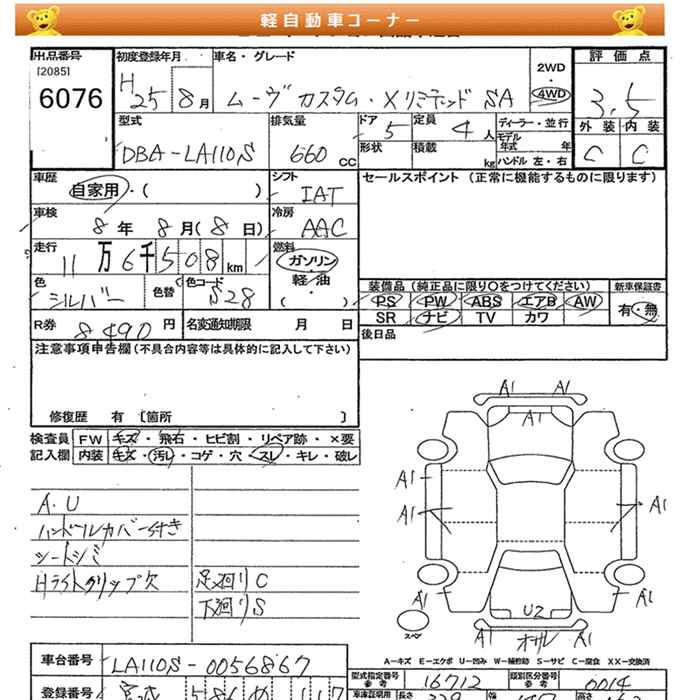 軽自動車コーナー
出品番号
[2085]
6076
初度登録年月
H 25 8 月
車名・グレード
ムーヴ カスタム・Xリミテッド SA
2WD
・
4WD
評価点
3.5
外装 内装
C C
型式
DBA-LA110S
排気量
660 cc
ドア
5
定員
4 人
ディーラー・並行
モデル
年式 年
形状
積載
kg
ハンドル 左・右
車歴
自家用・( )
シフト
IAT
セールスポイント (正常に機能するものに限ります)
車検
8 年 8 月 (8 日)
冷房
AAC
走行
11 万 6 千 508 km
燃料
ガソリン
・
軽・油
( )
色
シルバー
色替
色コード
S28
装備品 (純正品に限り〇をつけてください)
PS PW ABS エアB AW
SR ナビ TV カワ
新車保証書
有・無
R券
8490 円
名変通知期限 月 日
後日品
注意事項申告欄 (不具合内容等は具体的に記入して下さい)
修復歴 有 〔箇所 〕
検査員
記入欄
FW キズ・飛石・ヒビ割・リペア跡・×要
内装 キズ・汚レ・コゲ・穴・スレ・キレ・破レ
A.U
ハンドルカバー付き
シートシミ
Hライトクリップ欠
足廻りC
下廻りS
A1 A1
A1
A1
A1 A1
A1 A1
U2
A1 オサレ A1
スペア
A-キズ E-エクボ U-凹み W-補修跡 S-サビ C-腐食 XX-交換済
車台番号
LA110S-0056867
型式指定番号
参考
16712
類別区分番号
参考
0014
登録番号
宮城
車庫証明用
長さ
339